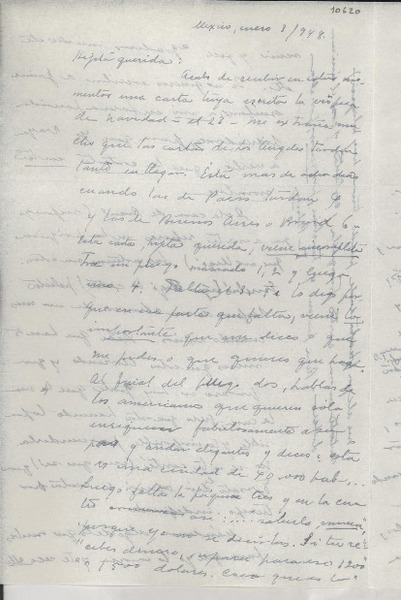 10620
Mexico, enero 3/948.
Hijita querida:
Acabo de recibir en estos mo-
mentos una carta tuya escrita la víspera
de Navidad - el 23 - Me extraña mu-
cho que tus cartas de Los Angeles tarden
tanto en llegar. Esta mas de ocho días
cuando las de Paris tardan 6
y las de Buenos Aires o Brasil 6 -
Esta carta, hijita querida, viene incompleta
Trae un pliego marcado 1, 2 y luego
una 4. Falta el 3. Te lo digo por
que en esa parte que falta, viene lo
importante que me dices o que
me pides o que quieres que haga.
Al final del pliego dos, hablas de
los americanos que quieren sólo
enriquecer fabulosamente a sus
y andar elegantes y dices: esta
es una ciudad de 40.000 hab...
Luego falta la página tres y en la cua-
tro saberlo nunca,
"porque yo no se decirlos. Si tu re-
"cibes dinero, separar para eso 1200
"a 1500 dolares. Creo que es lo